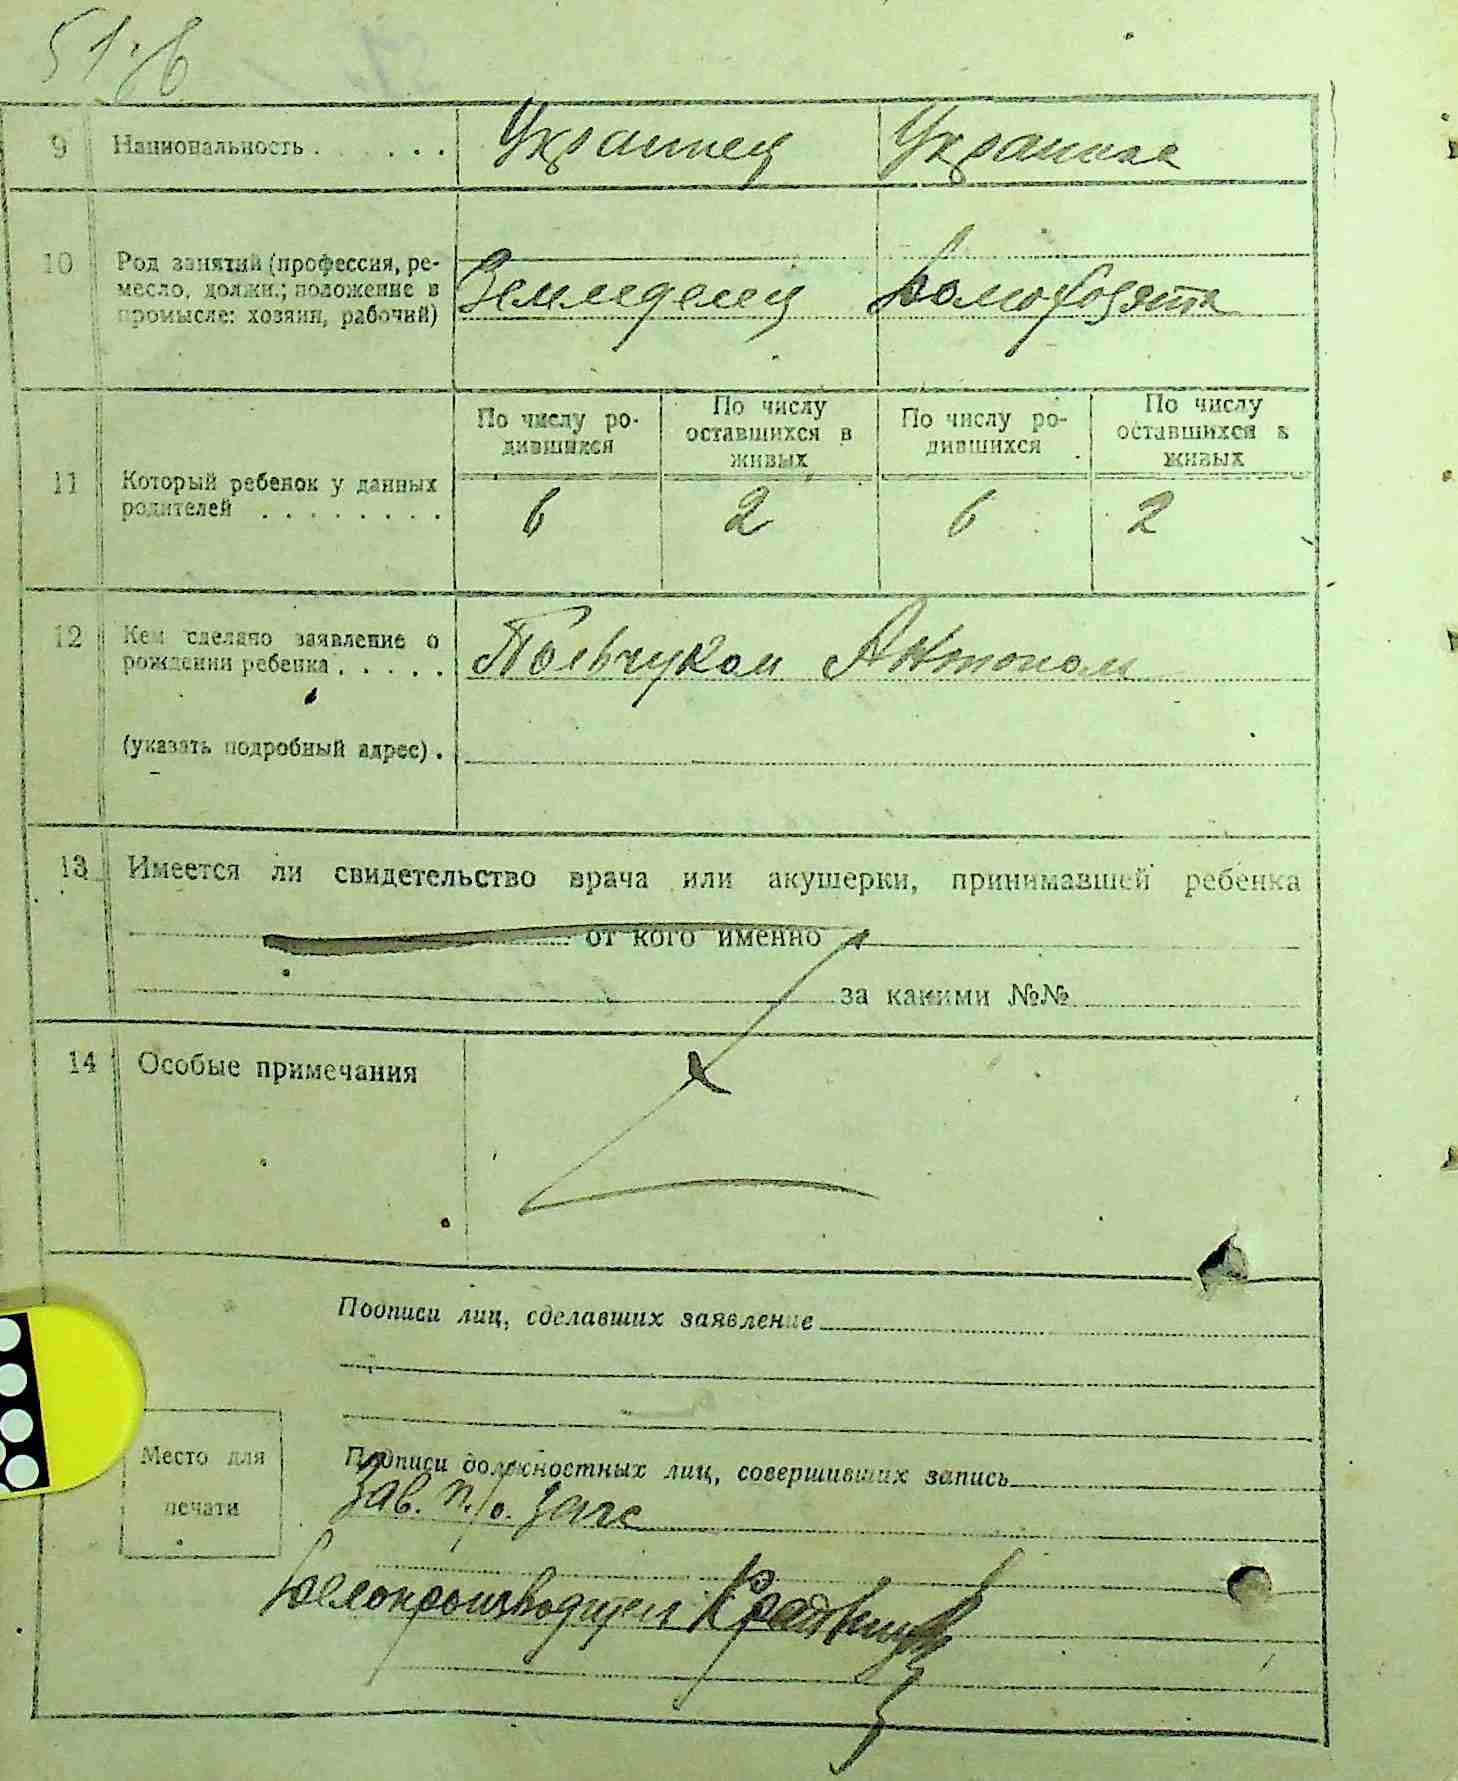 51 б
9 Национальность . . . . . . Украинец Украинка
10 Род занятий (профессия, ре-
месло, должн.; положение в
промысле: хозяин, рабочий) Земледелец Домохозяйка
11 Который ребенок у данных
родителей . . . . . . . .
По числу ро-
дившихся
По числу
оставшихся в
живых
По числу ро-
дившихся
По числу
оставшихся в
живых
6 2 6 2
12 Кем сделано заявление о
рождении ребенка . . . . . Польчуком Антоном
(указать подробный адрес) .
13 Имеется ли свидетельство врача или акушерки, принимавшей ребенка
от кого именно
за какими №№
14 Особые примечания
Подписи лиц, сделавших заявление
Место для
печати
Подписи должностных лиц, совершивших запись
Зав. п/о. загс
Делопроизводитель